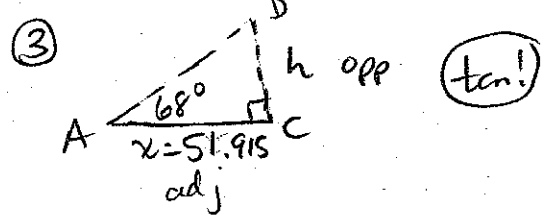 ③
D
h opp
tan!
68°
A
C
x=51.915
adj